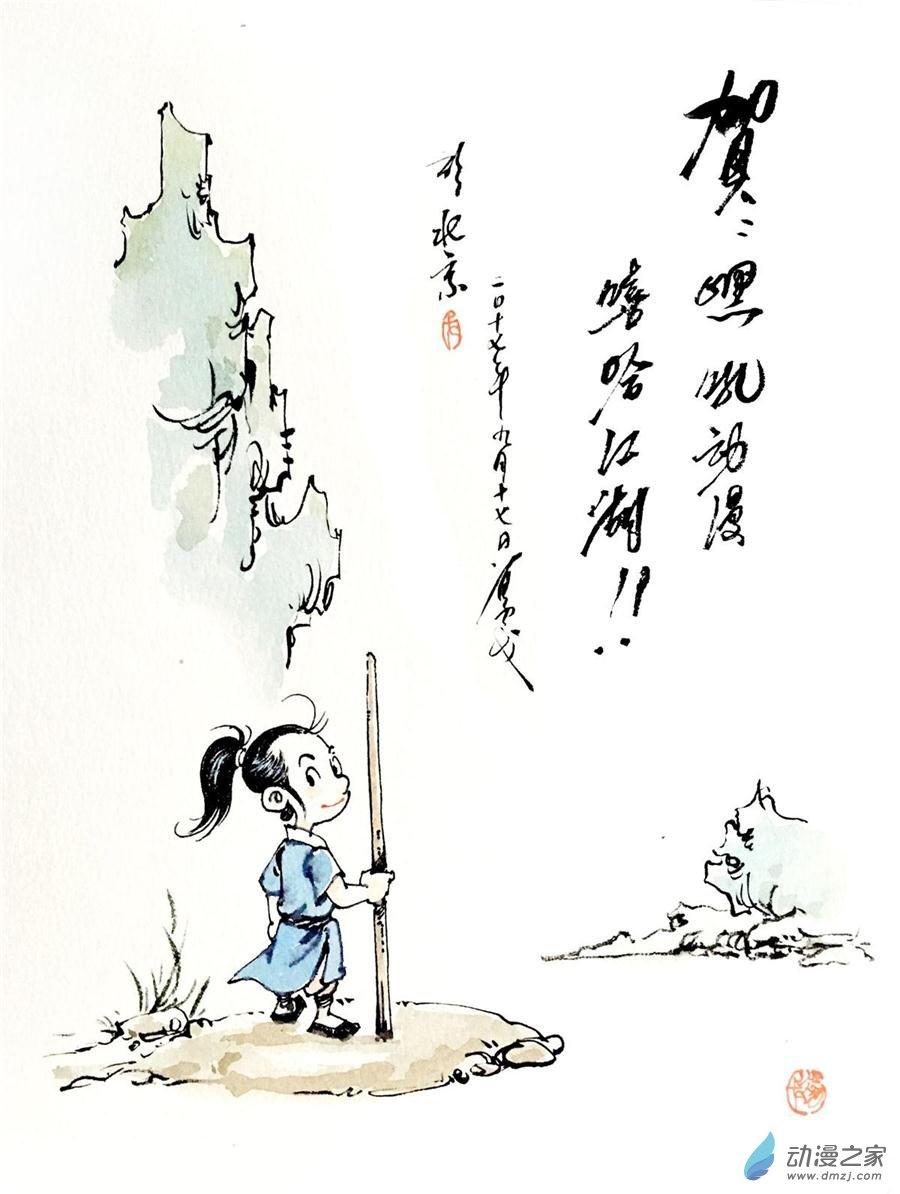 贺:
嘿吼动漫
嘻哈江湖!!
二〇十七年九月十七日
于北京
动漫之家
www.dmzj.com